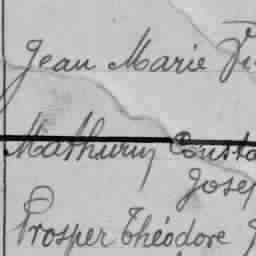 Jean Marie
Mathurin Consta
Jose
Prosper Théodore